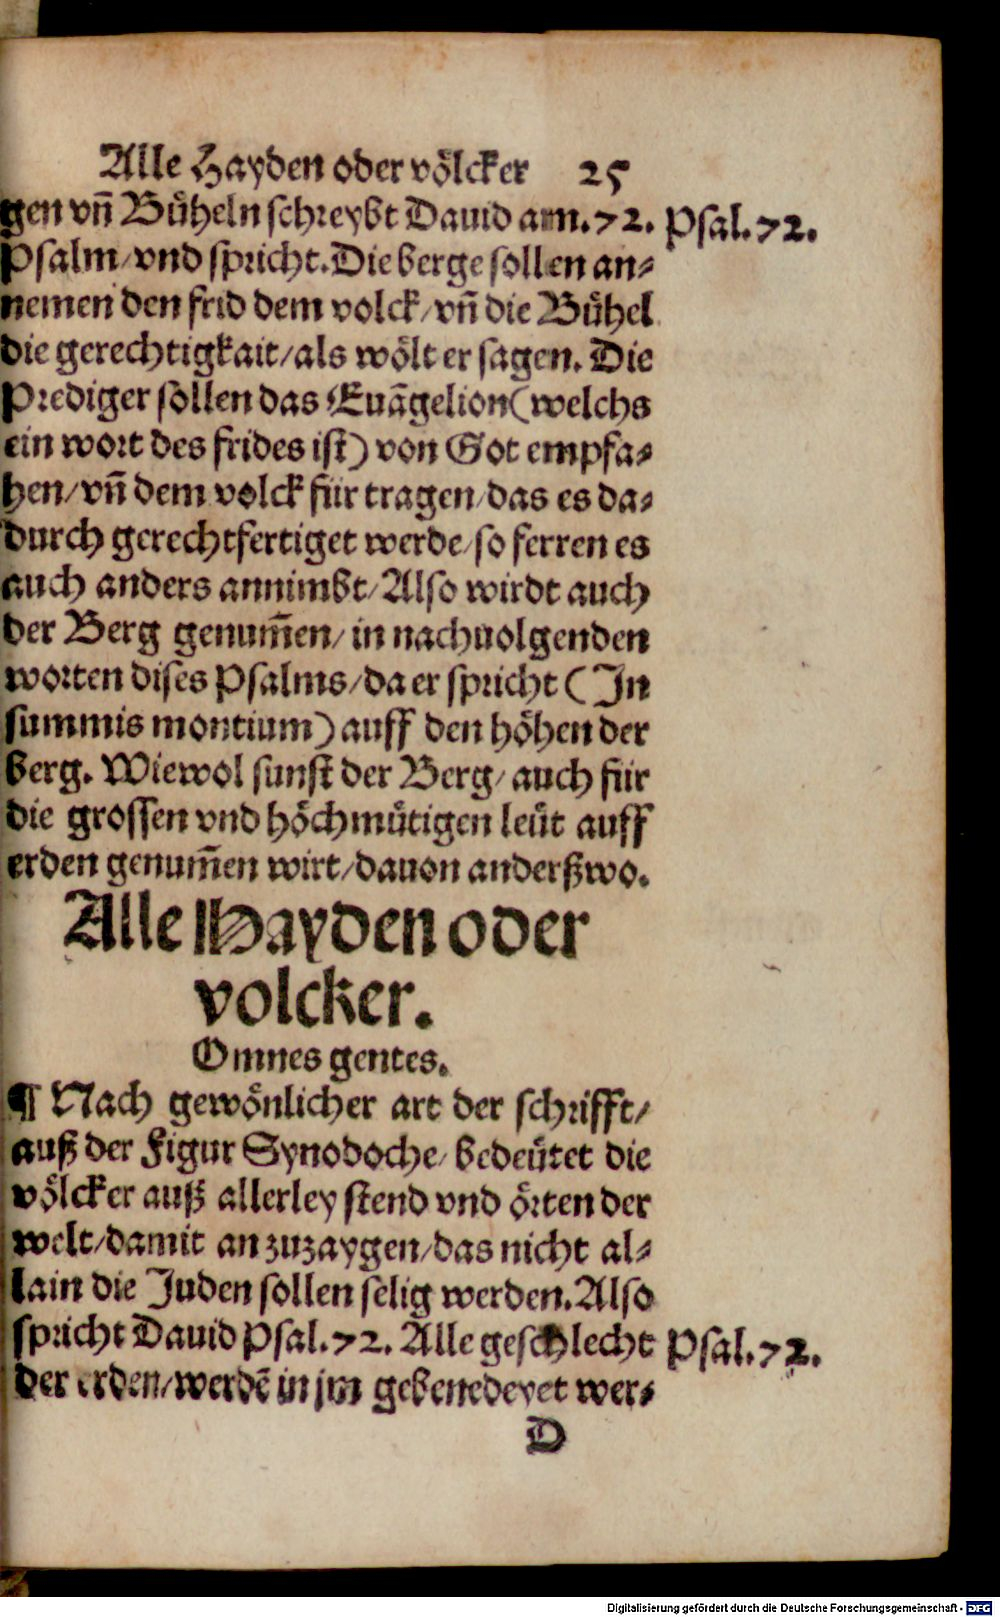 Alle Hayden oder völcker 25
gen vñ Bůheln schreybt Dauid am.72. Psal.72.
Psalm/vnd spricht.Die berge sollen an-
nemen den frid dem volck/vñ die Bůhel
die gerechtigkait/als wölt er sagen. Die
Prediger sollen das Euãgelion(welchs
ein wort des frides ist) von Got empfa-
hen/vñ dem volck für tragen/das es da-
durch gerechtfertiget werde/so ferren es
auch anders annimbt/Also wirdt auch
der Berg genum̃en/in nachuolgenden
worten dises Psalms/da er spricht (In
summis montium) auff den höhen der
berg. Wiewol sunst der Berg/auch für
die grossen vnd höchmütigen leüt auff
erden genum̃en wirt/dauon anderßwo.
Alle Hayden oder
volcker.
Omnes gentes.
¶ Nach gewönlicher art der schrifft/
auß der Figur Synodoche/bedeütet die
völcker auß allerley stend vnd örten der
welt/damit an zuzaygen/das nicht al-
lain die Juden sollen selig werden.Also
spricht Dauid Psal.72. Alle geschlecht Psal.72.
der erden/werdẽ in jm gebenedeyet wer-
D
Digitalisierung gefördert durch die Deutsche Forschungsgemeinschaft - DFG